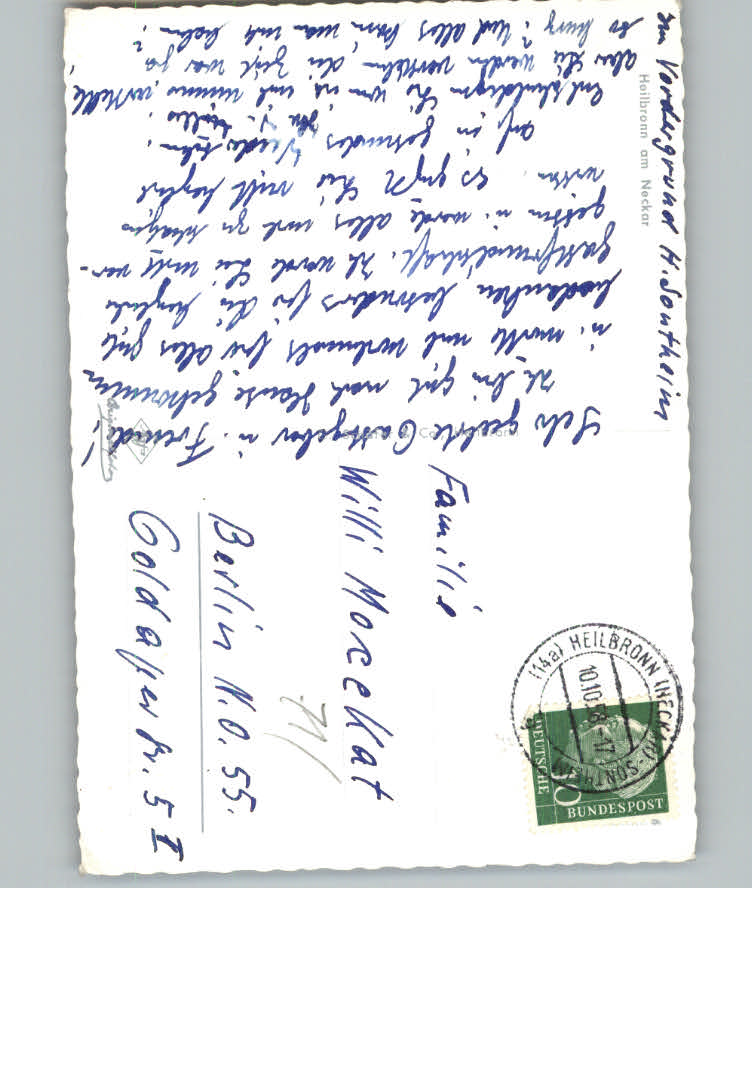 Im Vordergrund H. Sontheim
Heilbronn am Neckar
Sehr geehrte Gastgeber u. Freunde!
Ich bin gut nach Hause gekommen
u. möchte mich nochmals für alles gute
bedanken, besonders für die herzliche
Gastfreundschaft. Ich werde Sie nicht ver-
gessen u. werde alles mal zu
wissen. Es grüßt Sie recht herzlich
auf ein gesundes Wiedersehen.
Entschuldigen Sie wenn ich mich nimmer
aber Sie werden verstehen, die Zeit war ja
so kurz? Und alles kann man nicht haben?
Familie
Willi Moxekat
Berlin N.O. 55.
Goldaperstr. 5 I
71/
(14a) HEILBRONN (NECKAR)-SONTHEIM
10.10.58-17
DEUTSCHE
BUNDESPOST